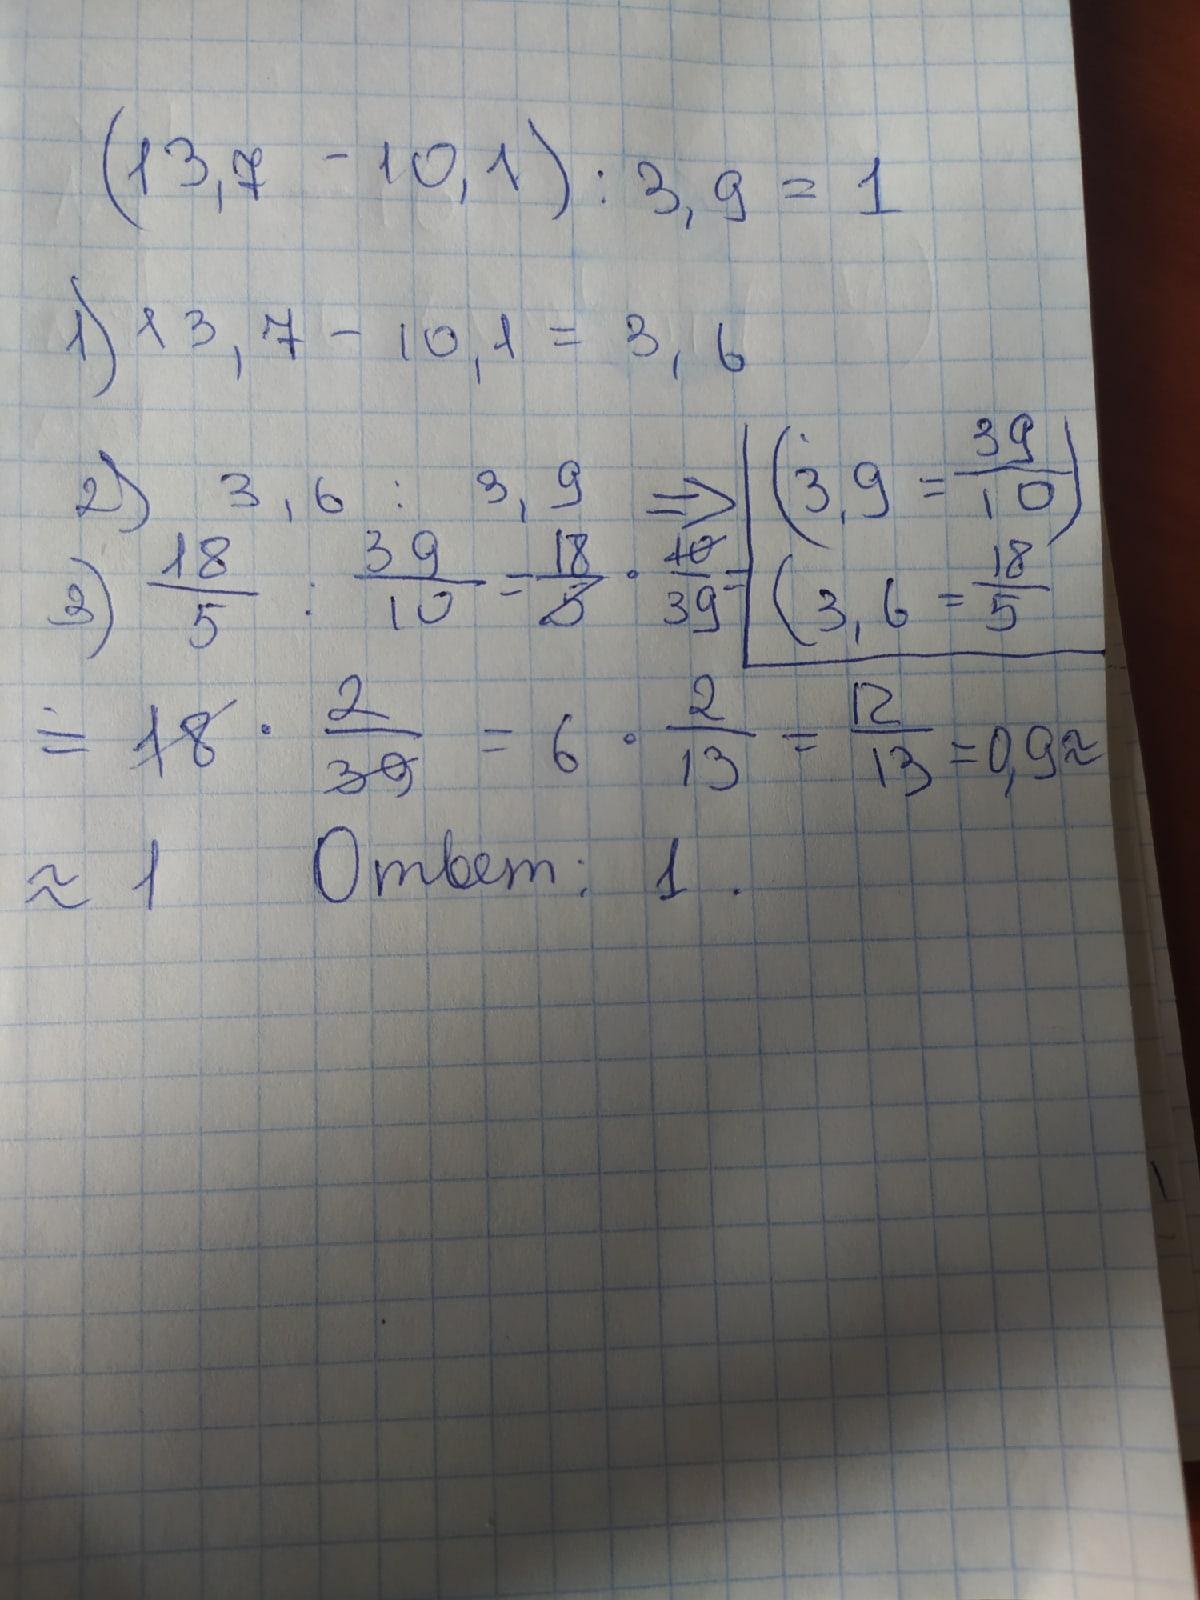 (13,7 - 10,1) : 3,9 = 1
1) 13,7 - 10,1 = 3,6
2) 3,6 : 3,9 => (3,9 = 39/10)
3) 18/5 : 39/10 = 18/5 · 10/39 = (3,6 = 18/5
= 18 · 2/39 = 6 · 2/13 = 12/13 = 0,9 ≈
≈ 1 Ответ: 1.